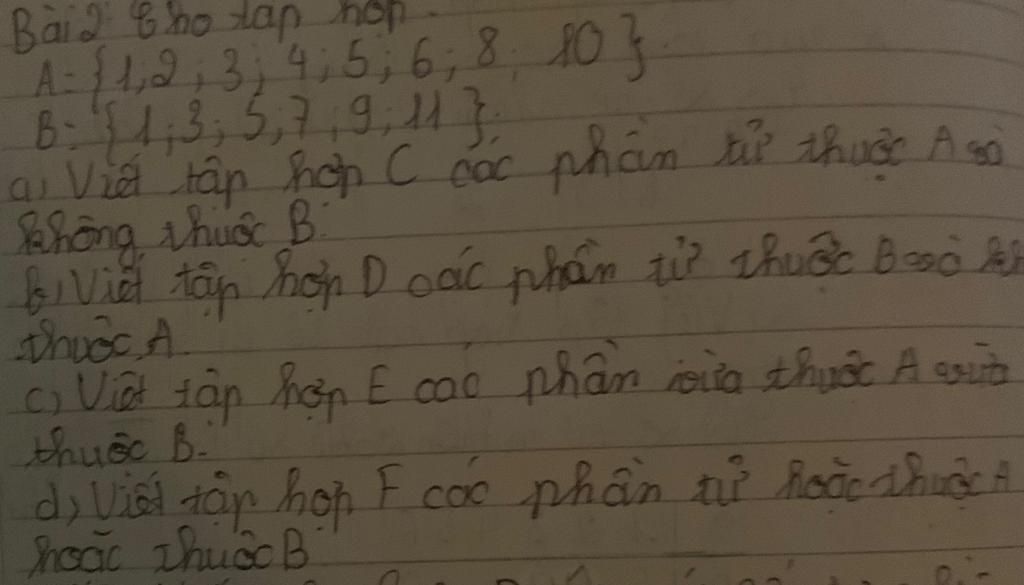 Bài 2 Cho tập hợp.
A = {1; 2; 3; 4; 5; 6; 8; 10}
B = {1; 3; 5; 7; 9; 11};
a) Viết tập hợp C các phần tử thuộc A và
không thuộc B.
b) Viết tập hợp D các phần tử thuộc B và
thuộc A.
c) Viết tập hợp E các phần vừa thuộc A vừa
thuộc B.
d) Viết tập hợp F các phần tử hoặc thuộc A
hoặc thuộc B